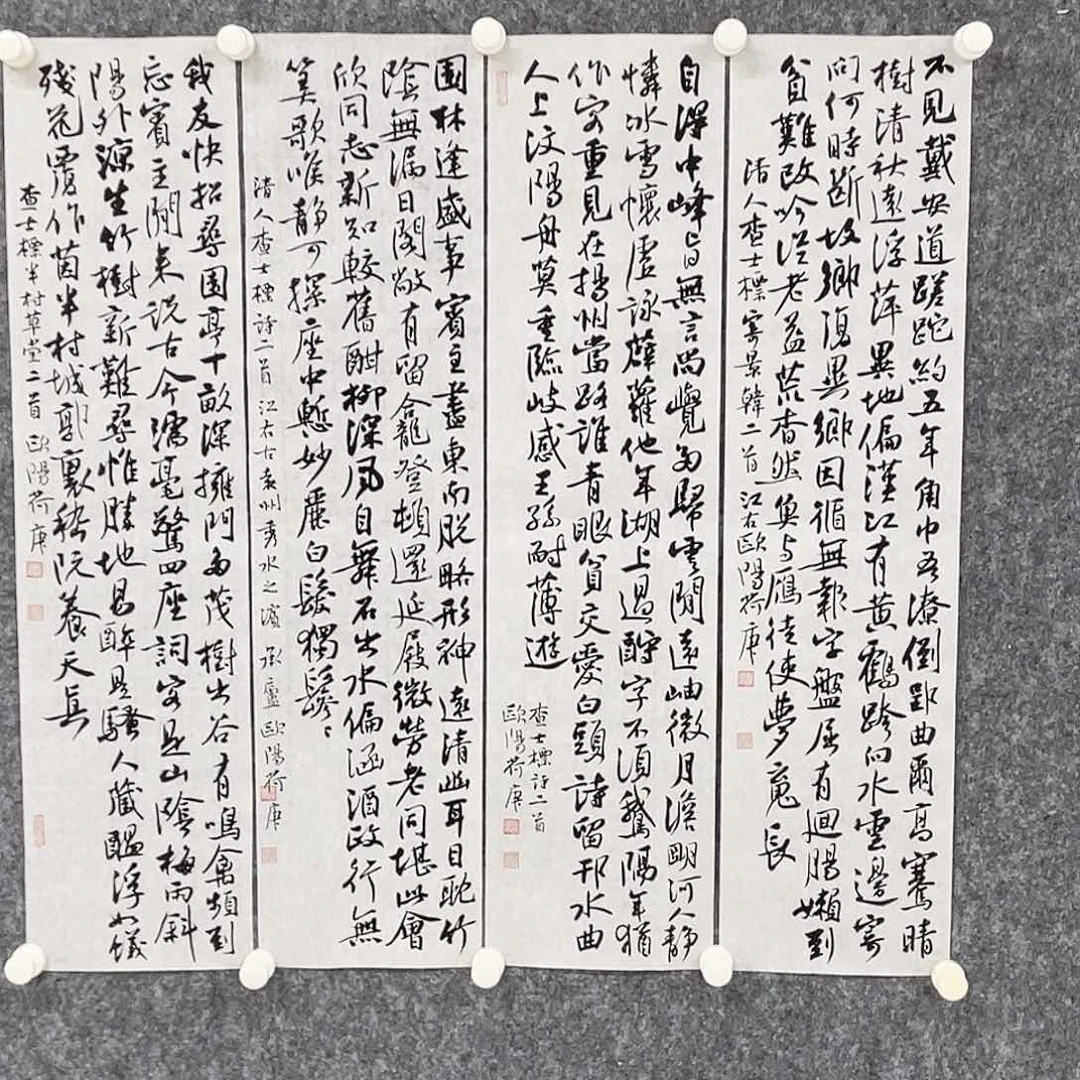 不見戴安道蹉跎約五年角巾吾潦倒郢曲爾高騫晴
樹清秋遠浮萍異地偏漢江有黃鶴跨向水雲邊寄
問何時斷故鄉復異鄉因循無報字盤屈有迴腸嬾到
貧難改吟從老益荒杳然魚與雁徒使夢魂長
清人查士標寄景韓二首 江右歐陽荷庚
自得中峰旨無言尚覺多歸雲閒遠岫微月澹明河人靜
憐冰雪懷虛詠薜蘿他年湖上過酹字不須鵝隔年猶
作客重見在揚州當路誰青眼貧交愛白頭詩留邗水曲
人上汶陽舟莫重臨岐感王孫耐薄遊
查士標詩二首
歐陽荷庚
園林逢盛事賓主盡東南脫略形神遠清幽耳目耽竹
陰無漏日閣敞有留龕登頓還延屐微勞老同堪此會
欣同志新知較舊酣柳深風自舞石出水偏涵酒政行無
算歌喉靜可探座中慙妙麗白髮獨鬖鬖
清人查士標詩二首 江右古袁州秀水之濱 承廬歐陽荷庚
我友快招尋園亭十畝深擁門多茂樹出谷有鳴禽頻到
忘賓主閒來說古今濡毫驚四座詞客是山陰梅雨斜
陽外涼生竹樹新難尋惟勝地易醉是騷人藏醞浮如蟻
殘花覆作茵半村城郭裏嵇阮養天真
查士標半村草堂二首 歐陽荷庚